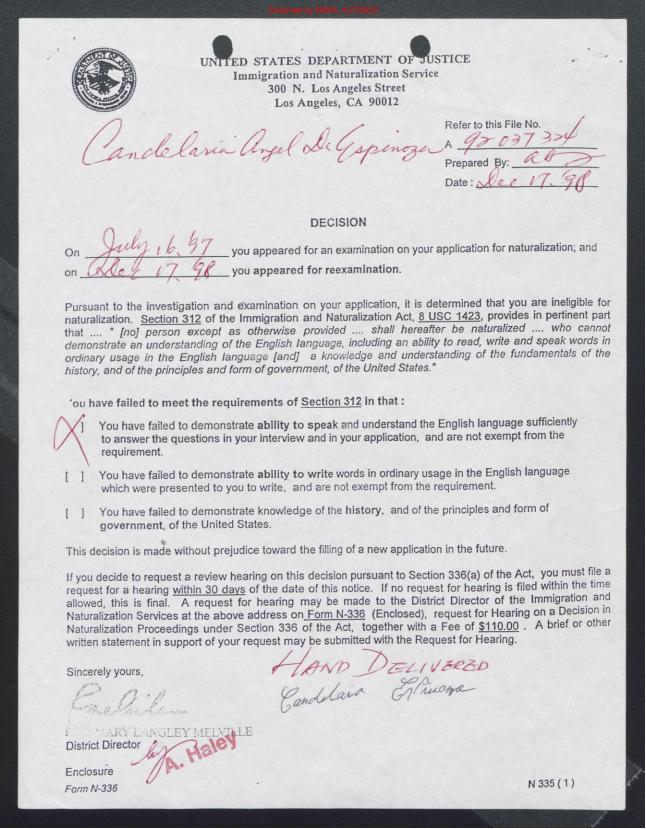 UNITED STATES DEPARTMENT OF JUSTICE
Immigration and Naturalization Service
300 N. Los Angeles Street
Los Angeles, CA 90012
Candelaria Angel De Espinoza
Refer to this File No.
A 92 037 324
Prepared By:
Date: Dec 17, '98
DECISION
On July 16, '97 you appeared for an examination on your application for naturalization; and
on Dec 17, 98 you appeared for reexamination.
Pursuant to the investigation and examination on your application, it is determined that you are ineligible for
naturalization. Section 312 of the Immigration and Nationality Act, 8 USC 1423, provides in pertinent part
that .... " [no] person except as otherwise provided .... shall hereafter be naturalized .... who cannot
demonstrate an understanding of the English language, including an ability to read, write and speak words in
ordinary usage in the English language [and] a knowledge and understanding of the fundamentals of the
history, and of the principles and form of government, of the United States."
'ou have failed to meet the requirements of Section 312 in that :
X ] You have failed to demonstrate ability to speak and understand the English language sufficiently
to answer the questions in your interview and in your application, and are not exempt from the
requirement.
[ ] You have failed to demonstrate ability to write words in ordinary usage in the English language
which were presented to you to write, and are not exempt from the requirement.
[ ] You have failed to demonstrate knowledge of the history, and of the principles and form of
government, of the United States.
This decision is made without prejudice toward the filling of a new application in the future.
If you decide to request a review hearing on this decision pursuant to Section 336(a) of the Act, you must file a
request for a hearing within 30 days of the date of this notice. If no request for hearing is filed within the time
allowed, this is final. A request for hearing may be made to the District Director of the Immigration and
Naturalization Services at the above address on Form N-336 (Enclosed), request for Hearing on a Decision in
Naturalization Proceedings under Section 336 of the Act, together with a Fee of $110.00 . A brief or other
written statement in support of your request may be submitted with the Request for Hearing.
Sincerely yours,
HAND DELIVERED
Candelara Espinoza
ROSEMARY LANGLEY MELVILLE
District Director
by A. Haley
Enclosure
Form N-336
N 335 ( 1 )